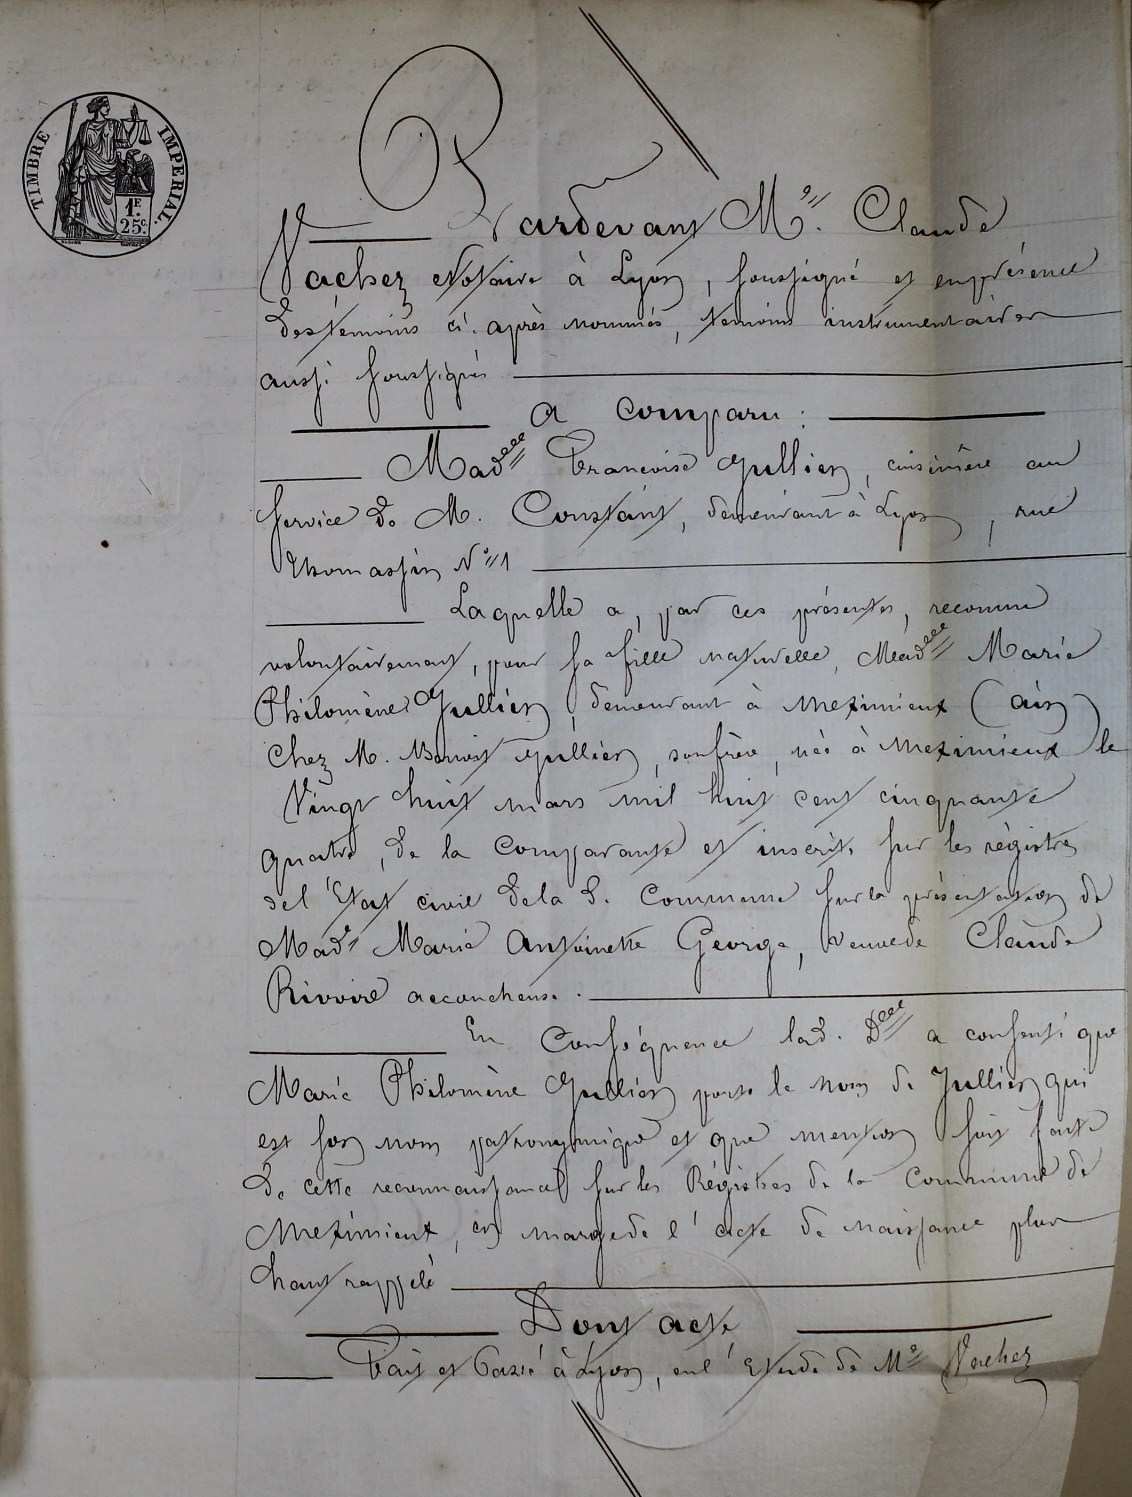 TIMBRE IMPERIAL.
1F. 25c.
Pardevant Me. Claude
Vachez Notaire à Lyon, soussigné et en présence
des témoins ci-après nommés, témoins instrumentaires
aussi soussignés
A comparu :
Madelle Françoise Jullien, cuisinière au
service de M. Constant, demeurant à Lyon, rue
Thomassin No 1
Laquelle a, par ces présentes, reconnu
volontairement, pour sa fille naturelle, Madelle Marie
Philomène Jullien, demeurant à Meximieux (Ain)
chez M. Benoit Jullien, son frère, née à Meximieux le
Vingt huit mars mil huit cent cinquante
quatre, de la comparante et inscrite sur les régistres
de l'Etat civil de la d. Commune sur la présentation de
Made Marie Antoinette George, veuve de Claude
Rivoire accoucheuse.
En Conséquence lad. Delle a consenti que
Marie Philomène Jullien porte le nom de Jullien qui
est son nom patronymique et que mention soit faite
de cette reconnaissance sur les Régistres de la Commune de
Meximieux, en marge de l'acte de naissance plus
haut rappelé
Dont acte
Fait et Passé à Lyon, en l'Etude de Me Vachez